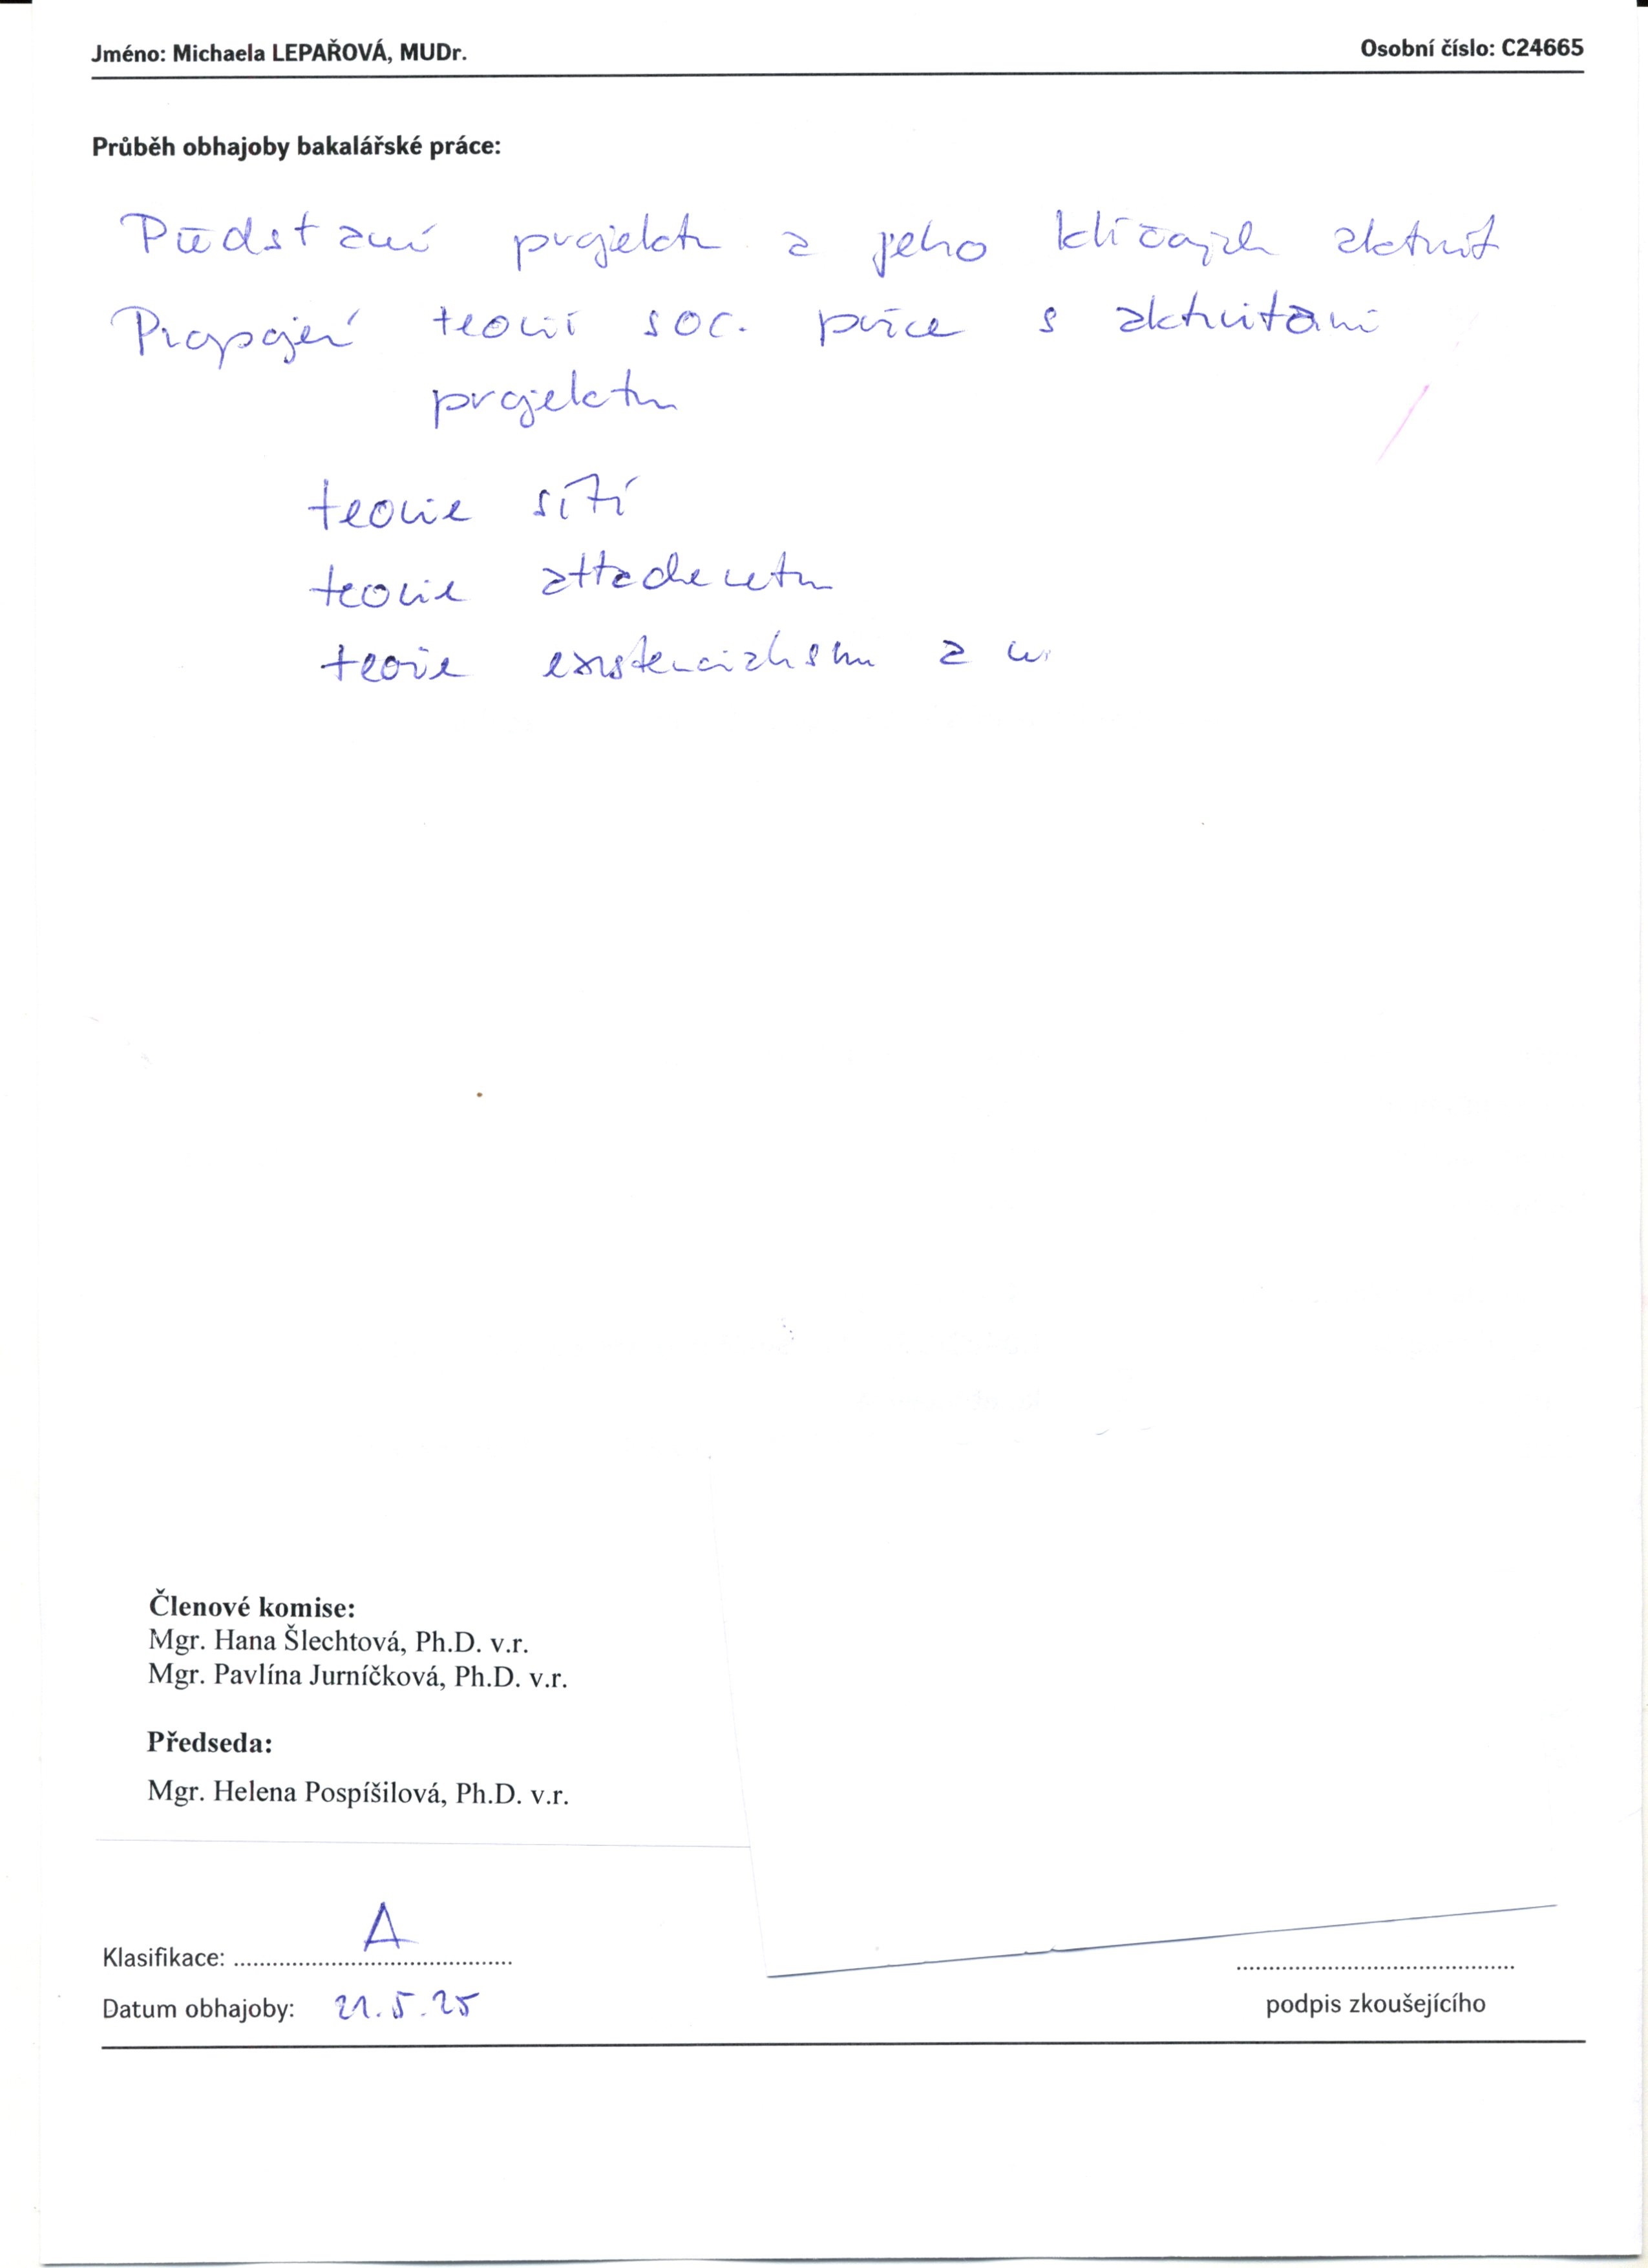 Jméno: Michaela LEPAŘOVÁ, MUDr. Osobní číslo: C24665
Průběh obhajoby bakalářské práce:
Představení projektu a jeho klíčových aktivit
Propojení teorií soc. práce s aktivitami
projektu
teorie sítí
teorie attachmentu
teorie existencialismu a
Členové komise:
Mgr. Hana Šlechtová, Ph.D. v.r.
Mgr. Pavlína Jurníčková, Ph.D. v.r.
Předseda:
Mgr. Helena Pospíšilová, Ph.D. v.r.
Klasifikace: A
Datum obhajoby: 21.5.25
podpis zkoušejícího